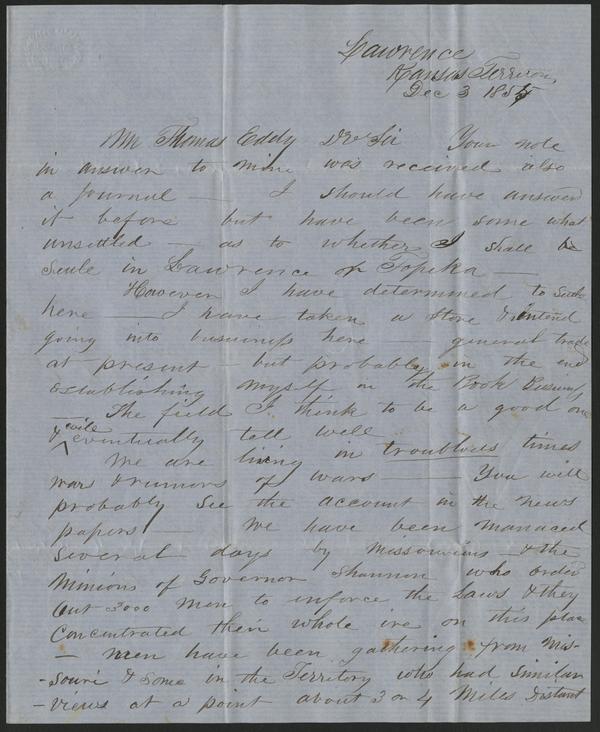 Lawrence
Kansas Territory
Dec 3 1855
Mr Thomas Eddy Dr Sir Your note
in answer to mine was received also
a Journal — I should have answered
it before but have been some what
unsettled — as to whether I shall be
Settle in Lawrence or Topeka —
However I have determined to Settle
here — I have taken a Store & intend
going into business here — general trade
at present — but probably in the end
Establishing myself in the Book Business
— The field I think to be a good one
& will eventually tell well
We are living in troublous times
wars & rumors of wars — You will
probably See the account in the news
papers — We have been manaced
Several days by Missourians & the
Minions of Governor Shannon who order
out 3000 men to enforce the Laws & they
Concentrated their whole ire on this place
— men have been gathering from Mis-
-souri & Some in the Territory who had Similar
-views at a point about 3 or 4 Miles distant